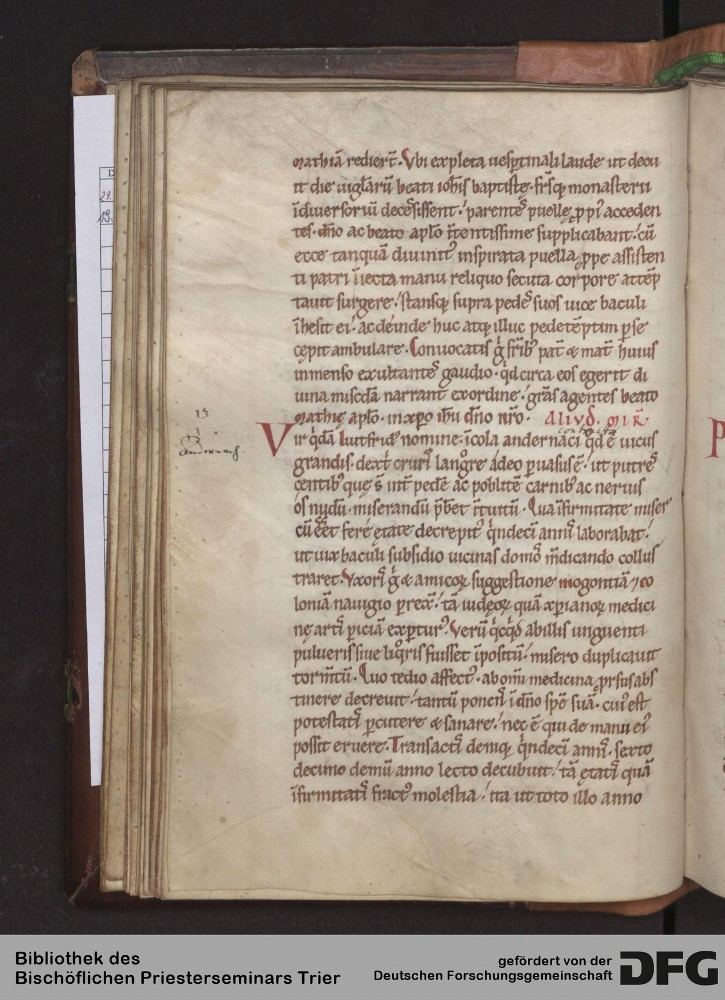 mathiā redierť. Vbi expleta uesp̱tinali laude ut decu
it die uigiliarū beati ioh̄is baptistę. fr̄sq; monasterii
ī diuersoriū decessissent. parentes puellę p̱pi acceden
tes. dn̄o ac beato aplo īt̄entissime supplicabant. cū
ecce tanquā diuinitᵒ inspirata puella p̱pe assisten
ti patri iniecta manu reliquo secuta corpore attēp
tauit surgere. stansq; supra pedes suos uice baculi
īhesit ei. ac deinde huc atq; illuc pedetēptim p̱ se
cępit ambulare. Conuocatis ḡ fr̄ib; pat̄ & mat̄ huius
inmenso exultantes gaudio. qd̄ circa eos egerit di
uina miscd̄ia narrant ex ordine. grās agentes beato
mathię aplo. in xp̄o ihu dn̄o nr̄o. Aliud. MIR̄.
contractus
Vir qdā liutfridᵒ nomine. īcola andernaci qd ē uicus
grandis. dext̄ cruris langore adeo p̱uasus ē. ut putres
centib; quę s̄ int̄ pedē ac poblitē carnib; ac neruis
os nudū. miserandū p̄bet īt̄uitū. Qua īfirmitate miser
cū eēt fere ętate decrepitᵒ qndeci annis laborabat.
ut uix baculi subsidio uicinas domos m̄dicando collus
traret. Vxoris ḡ & amicoꝝ suggestione mogontiā & co
loniā nauigio p̱rexit. tā iudęoꝝ quā xp̄ianoꝝ medici
nę artis p̱iciā exp̱turᵒ. Verū qcqd ab illis unguenti
pulueris siue liqoris fuisset īpositū. misero duplicauit
torm̄tū. Quo tedio affectᵒ. ab omi medicina p̱rsus abs
tinere decreuit. tantū ponens ī dn̄o spē suā. cuiᵒ est
potestatis p̱cutere & sanare. nec ē qui de manu eiᵒ
possit eruere. Transactis deniq; qndeci annis. sexto
decimo demū anno lecto decubuit. tā ętatis quā
īfirmitatis fractᵒ molestia. ita ut toto illo anno
15
Andernach.
Bibliothek des
Bischöflichen Priesterseminars Trier
gefördert von der
Deutschen Forschungsgemeinschaft
DFG